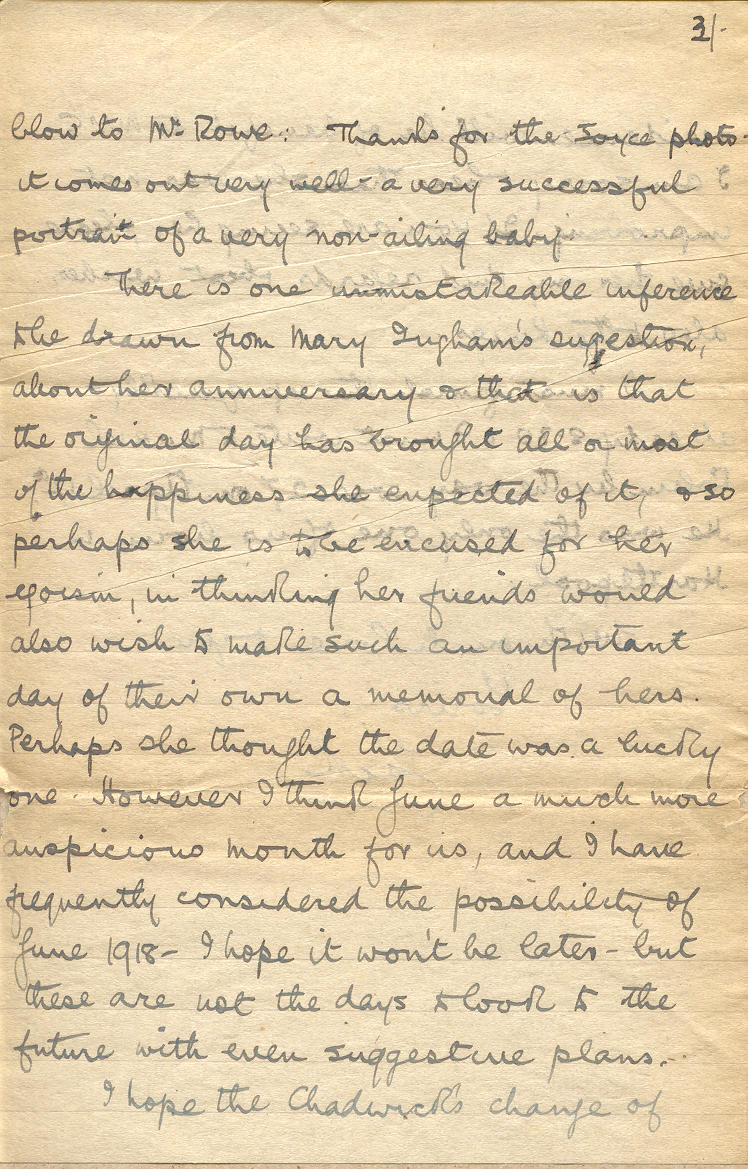 3/-
blow to Mr Rowe. Thanks for the Joyce photo-
it comes out very well - a very successful
portrait of a very non-ailing baby.
There is one unmistakeable inference
to be drawn from Mary Ingham's sugestion,
about her anniversary & that is that
the original day has brought all or most
of the happiness she expected of it, & so
perhaps she is to be excused for her
egoism, in thinking her friends would
also wish to make such an important
day of their own a memorial of hers.
Perhaps she thought the date was a lucky
one. However I think June a much more
auspicious month for us, and I have
frequently considered the possibility of
June 1918 - I hope it won't be later - but
these are not the days to look to the
future with even suggestive plans.
I hope the Chadwick's change of